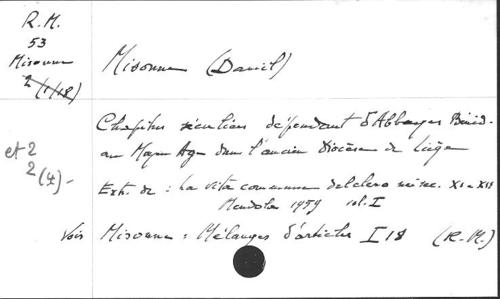 R.M.
53
Misonne
2 (1/18)
Misonne (Daniel)
Chapitres séculiers dépendant d'Abbayes Bénéd.
au Moyen Age dans l'ancien Diocèse de Liège
et 2
2 (4) -
Extr. de : La vita commune del clero nei sec. XI e XII
Mendola 1959 vol. I
Vois Misonne : Mélanges d'articles I 18 (R.M.)